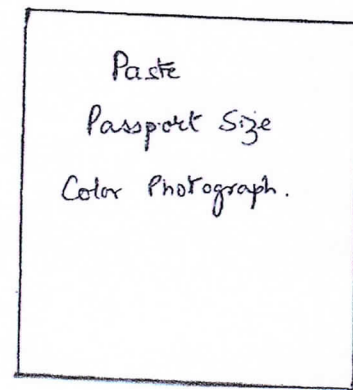 Paste
Passport Size
Color Photograph.